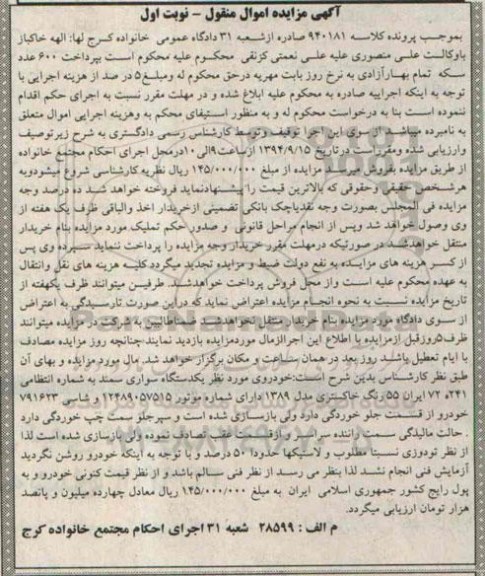 آگهی مزایده اموال منقول - نوبت اول
بموجب پرونده کلاسه ۹۴۰۱۸۱ صادره ازشعبه ۳۱ دادگاه عمومی خانواده کرج لها: الهه خاکباز
باوکالت علی منصوری علیه علی نعمتی کزنقی محکوم علیه محکوم است بپرداخت ۶۰۰ عدد
سکه تمام بهارآزادی به نرخ روز بابت مهریه درحق محکوم له ومبلغ۵ در صد از هزینه اجرایی با
توجه به اینکه اجراییه صادره به محکوم علیه ابلاغ شده و در مهلت مقرر نسبت به اجرای حکم اقدام
ننموده است بنا به درخواست محکوم له و به منظور استیفای محکم به وهزینه اجرایی اموال متعلق
به نامبرده میباشد از سوی این اجرا توقیف وتوسط کارشناس رسمی دادگستری به شرح زیرتوصیف
وارزیابی شده ومقرراست درتاریخ ۱۳۹۴/۹/۱۵ ازساعت۹الی۱۰درمحل اجرای احکام مجتمع خانواده
از طریق مزایده بفروش میرسد مزایده از مبلغ ۱۴۵/۰۰۰/۰۰۰ ریال نظریه کارشناسی شروع میشودوبه
هرشخص حقیقی وحقوقی که بالاترین قیمت را پیشنهادنماید فروخته خواهد شد ده درصد وجه
مزایده فی المجلس بصورت وجه نقدیاچک بانکی تضمینی ازخریدار اخذ والباقی ظرف یک هفته از
وی وصول خواهد شد وپس از انجام مراحل قانونی و صدور حکم تملیک مورد مزایده بنام خریدار
منتقل خواهدشد در صورتیکه درمهلت مقرر خریدار وجه مزایده را پرداخت ننماید سپرده وی پس
از کسر هزینه های مزایده به نفع دولت ضبط و مزایده تجدید میگردد کلیه هزینه های نقل وانتقال
به عهده محکوم علیه است واز محل فروش پرداخت خواهدشد. طرفین میتوانند ظرف یکهفته از
تاریخ مزایده نسبت به نحوه انجام مزایده اعتراض نماید که دراین صورت تارسیدگی به اعتراض
از سوی دادگاه مورد مزایده بنام خریدار منتقل نخواهدشد و ضمناطالبین به شرکت در مزایده میتوانند
ظرف۵روزقبل ازمزایده با اطلاع این اجراازمال موردمزایده بازدید نمایند چنانچه روز مزایده مصادف
با ایام تعطیل باشد روز بعد در همان ساعت و مکان برگزار خواهد شد. مال مورد مزایده و بهای آن
طبق نظر کارشناس بدین شرح است:خودروی مورد نظر یکدستگاه سواری سمند به شماره انتظامی
۲۴۱ه ۷۲ ایران ۵۵ رنگ خاکستری مدل ۱۳۸۹ دارای شماره موتور ۱۲۴۸۹۰۵۷۵۱۵ و شاسی ۷۹۱۶۲۳
خودرو از قسمت جلو خوردگی دارد ولی بازسازی شده است و سپرجلو سمت چپ خوردگی دارد
. حالت مالیدگی سمت راننده سر سر و ازقسمت عقب تصادف نموده ولی بازسازی شده است لذا
از نظر تودوزی نسبتا مطلوب و لاستیکها حدودا ۵۰ درصد و با توجه به اینکه خودرو روشن نگردید
آزمایش فنی انجام نشد لذا بنظر می رسد از نظر فنی سالم باشد و از نظر قیمت کنونی خودرو و به
پول رایج کشور جمهوری اسلامی ایران به مبلغ ۱۴۵/۰۰۰/۰۰۰ ریال معادل چهارده میلیون و پانصد
هزار تومان ارزیابی میگردد.
م الف : ۲۸۵۹۹ شعبه ۳۱ اجرای احکام مجتمع خانواده کرج